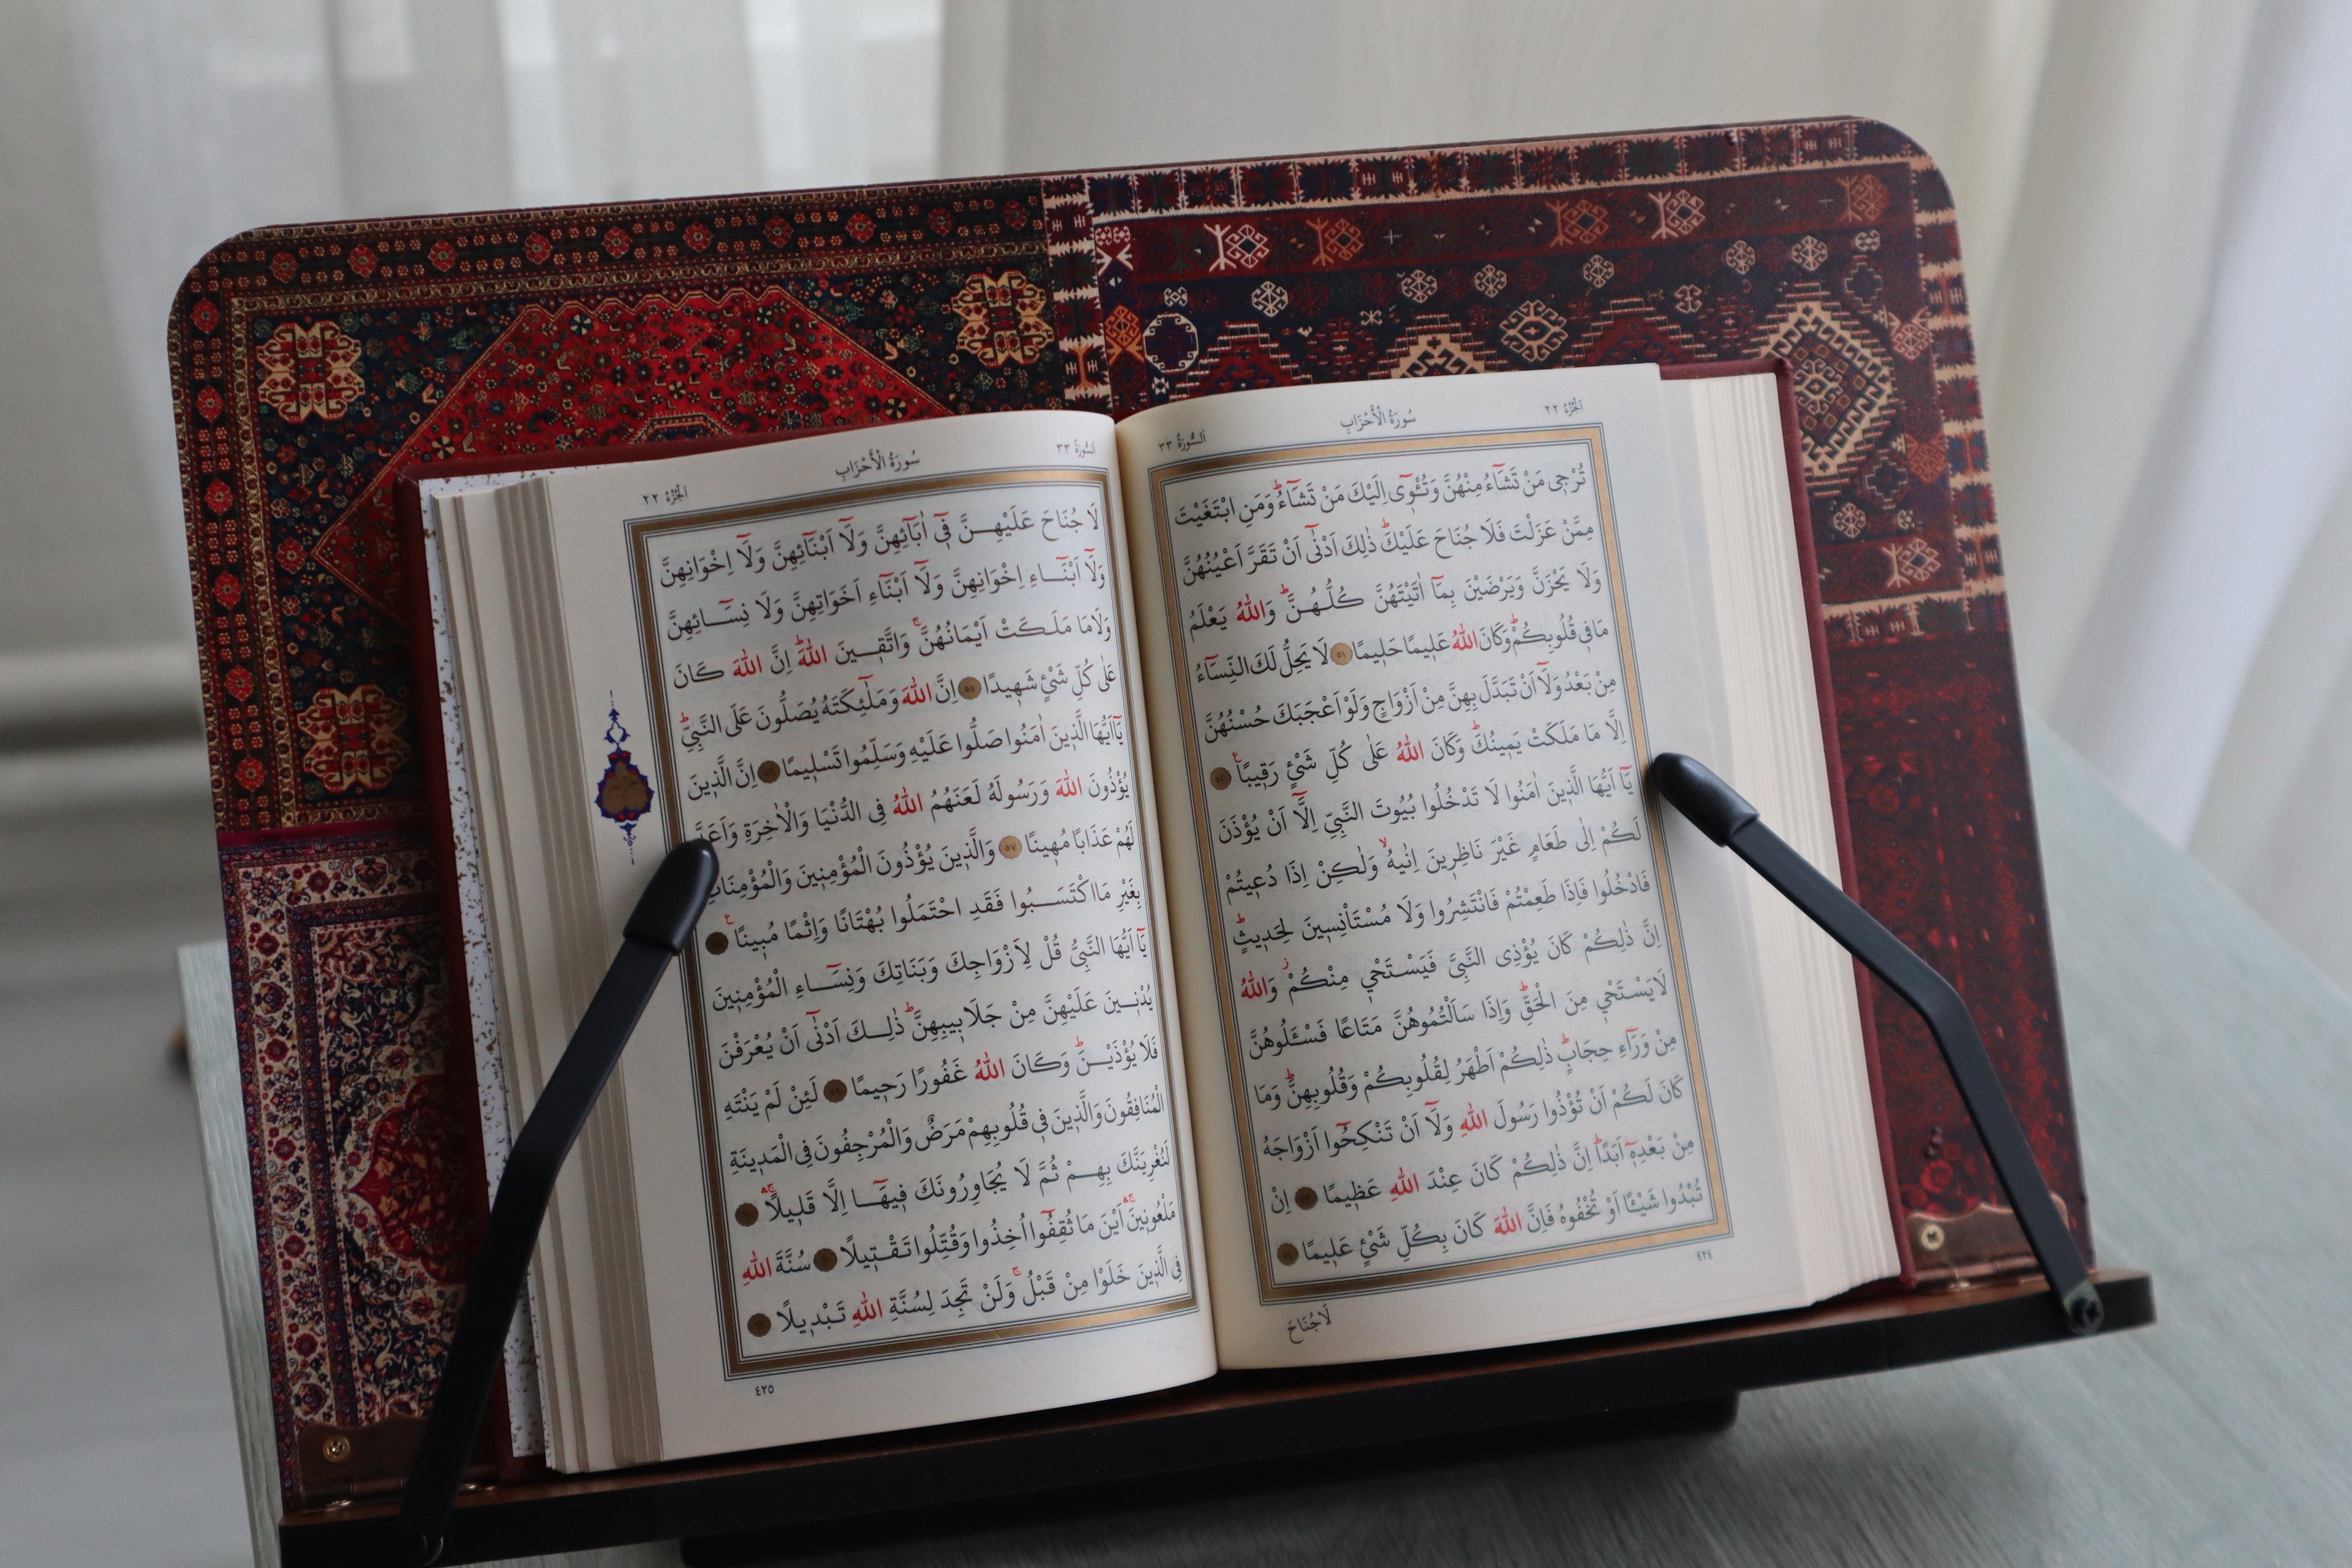 الجزء ٢٢
سُورَةُ الْأَحْزَابِ
اَلسُّورَةُ ٣٣
تُرْجٖى مَنْ تَشَٓاءُ مِنْهُنَّ وَتُـْٔوٖٓى اِلَيْكَ مَنْ تَشَٓاءُۜ وَمَنِ ابْتَغَيْتَ
مِمَّنْ عَزَلْتَ فَلَا جُنَاحَ عَلَيْكَۜ ذٰلِكَ اَدْنٰٓى اَنْ تَقَرَّ اَعْيُنُهُنَّ
وَلَا يَحْزَنَّ وَيَرْضَيْنَ بِمَٓا اٰتَيْتَهُنَّ كُلُّهُنَّۜ وَاللّٰهُ يَعْلَمُ
مَا فٖى قُلُوبِكُمْۜ وَكَانَ اللّٰهُ عَلٖيمًا حَلٖيمًا ٥١ لَا يَحِلُّ لَكَ النِّسَٓاءُ
مِنْ بَعْدُ وَلَٓا اَنْ تَبَدَّلَ بِهِنَّ مِنْ اَزْوَاجٍ وَلَوْ اَعْجَبَكَ حُسْنُهُنَّ
اِلَّا مَا مَلَكَتْ يَمٖينُكَۜ وَكَانَ اللّٰهُ عَلٰى كُلِّ شَیْءٍ رَقٖيبًاࣖ ٥٢
يَٓا اَيُّهَا الَّذٖينَ اٰمَنُوا لَا تَدْخُلُوا بُيُوتَ النَّبِیِّ اِلَّٓا اَنْ يُؤْذَنَ
لَكُمْ اِلٰى طَعَامٍ غَيْرَ نَاظِرٖينَ اِنٰيهُۙ وَلٰكِنْ اِذَا دُعٖيتُمْ
فَادْخُلُوا فَاِذَا طَعِمْتُمْ فَانْتَشِرُوا وَلَا مُسْتَاْنِسٖينَ لِحَدٖيثٍۜ
اِنَّ ذٰلِكُمْ كَانَ يُؤْذِى النَّبِیَّ فَيَسْتَحْيٖ مِنْكُمْؗ وَاللّٰهُ
لَا يَسْتَحْيٖ مِنَ الْحَقِّۜ وَاِذَا سَاَلْتُمُوهُنَّ مَتَاعًا فَسْـَٔلُوهُنَّ
مِنْ وَرَٓاءِ حِجَابٍۜ ذٰلِكُمْ اَطْهَرُ لِقُلُوبِكُمْ وَقُلُوبِهِنَّۜ وَمَا
كَانَ لَكُمْ اَنْ تُؤْذُوا رَسُولَ اللّٰهِ وَلَٓا اَنْ تَنْكِحُٓوا اَزْوَاجَهُ
مِنْ بَعْدِهٖٓ اَبَدًاۜ اِنَّ ذٰلِكُمْ كَانَ عِنْدَ اللّٰهِ عَظٖيمًا ٥٣ اِنْ
تُبْدُوا شَيْـًٔا اَوْ تُخْفُوهُ فَاِنَّ اللّٰهَ كَانَ بِكُلِّ شَیْءٍ عَلٖيمًا ٥٤
٤٢٤
لَا جُنَاحَ
اَلسُّورَةُ ٣٣
سُورَةُ الْأَحْزَابِ
الجزء ٢٢
لَا جُنَاحَ عَلَيْهِنَّ فٖٓى اٰبَٓائِهِنَّ وَلَٓا اَبْنَٓائِهِنَّ وَلَٓا اِخْوَانِهِنَّ
وَلَٓا اَبْنَٓاءِ اِخْوَانِهِنَّ وَلَٓا اَبْنَٓاءِ اَخَوَاتِهِنَّ وَلَا نِسَٓائِهِنَّ
وَلَا مَا مَلَكَتْ اَيْمَانُهُنَّۚ وَاتَّقٖينَ اللّٰهَۜ اِنَّ اللّٰهَ كَانَ
عَلٰى كُلِّ شَیْءٍ شَهٖيدًا ٥٥ اِنَّ اللّٰهَ وَمَلٰٓئِكَتَهُ يُصَلُّونَ عَلَى النَّبِیِّۜ
يَٓا اَيُّهَا الَّذٖينَ اٰمَنُوا صَلُّوا عَلَيْهِ وَسَلِّمُوا تَسْلٖيمًا ٥٦ اِنَّ الَّذٖينَ
يُؤْذُونَ اللّٰهَ وَرَسُولَهُ لَعَنَهُمُ اللّٰهُ فِى الدُّنْيَا وَالْاٰخِرَةِ وَاَعَدَّ
لَهُمْ عَذَابًا مُهٖينًا ٥٧ وَالَّذٖينَ يُؤْذُونَ الْمُؤْمِنٖينَ وَالْمُؤْمِنَاتِ
بِغَيْرِ مَا اكْتَسَبُوا فَقَدِ احْتَمَلُوا بُهْتَانًا وَاِثْمًا مُبٖينًاࣖ ٥٨
يَٓا اَيُّهَا النَّبِیُّ قُلْ لِاَزْوَاجِكَ وَبَنَاتِكَ وَنِسَٓاءِ الْمُؤْمِنٖينَ
يُدْنٖينَ عَلَيْهِنَّ مِنْ جَلَابٖيبِهِنَّۜ ذٰلِكَ اَدْنٰٓى اَنْ يُعْرَفْنَ
فَلَا يُؤْذَيْنَۜ وَكَانَ اللّٰهُ غَفُورًا رَحٖيمًا ٥٩ لَئِنْ لَمْ يَنْتَهِ
الْمُنَافِقُونَ وَالَّذٖينَ فٖى قُلُوبِهِمْ مَرَضٌ وَالْمُرْجِفُونَ فِى الْمَدٖينَةِ
لَنُغْرِيَنَّكَ بِهِمْ ثُمَّ لَا يُجَاوِرُونَكَ فٖيهَٓا اِلَّا قَلٖيلًاۚۛ ٦٠
مَلْعُونٖينَۚۛ اَيْنَ مَا ثُقِفُٓوا اُخِذُوا وَقُتِّلُوا تَقْتٖيلًا ٦١ سُنَّةَ اللّٰهِ
فِى الَّذٖينَ خَلَوْا مِنْ قَبْلُۚ وَلَنْ تَجِدَ لِسُنَّةِ اللّٰهِ تَبْدٖيلًا ٦٢
٤٢٥